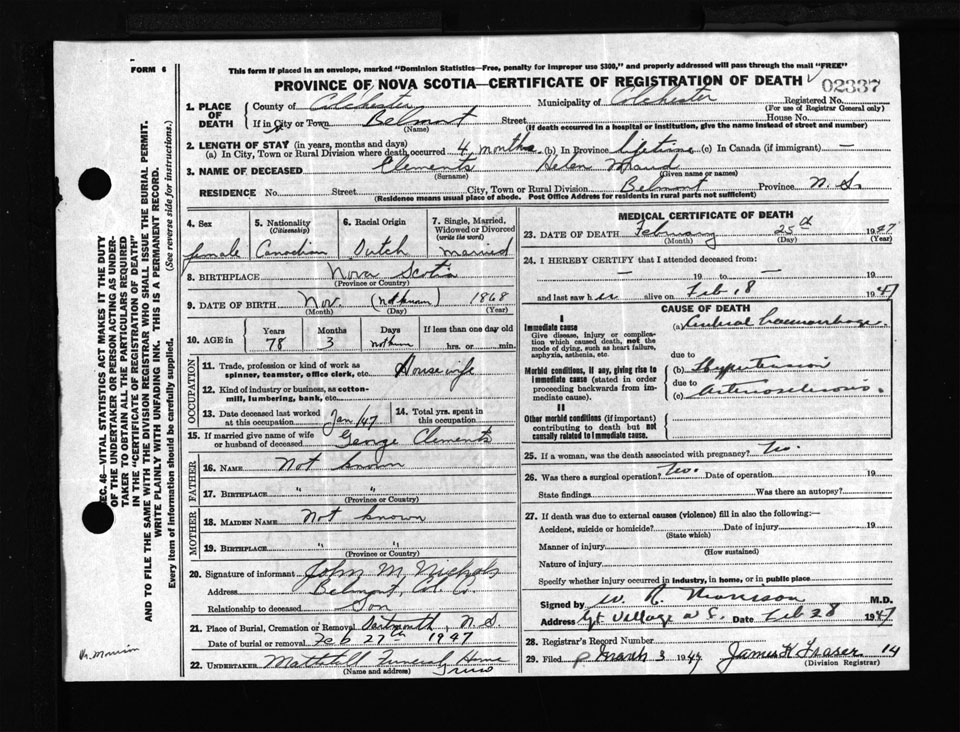 FORM 6
This form if placed in an envelope, marked "Dominion Statistics—Free, penalty for improper use $300," and properly addressed will pass through the mail "FREE"
PROVINCE OF NOVA SCOTIA—CERTIFICATE OF REGISTRATION OF DEATH
02337
1. PLACE OF DEATH
County of Colchester Municipality of Colchester Registered No.
(For use of Registrar General only)
If in City or Town Belmont Street House No.
(Name) (If death occurred in a hospital or institution, give the name instead of street and number)
2. LENGTH OF STAY (in years, months and days)
(a) In City, Town or Rural Division where death occurred 4 months (b) In Province lifetime (c) In Canada (if immigrant) —
3. NAME OF DECEASED Clements Helen Maud
(Surname) (Given name or names)
RESIDENCE No. Street City, Town or Rural Division Belmont Province N. S.
(Residence means usual place of abode. Post Office Address for residents in rural parts not sufficient)
4. Sex
female
5. Nationality
(Citizenship)
Canadian
6. Racial Origin
Dutch
7. Single, Married, Widowed or Divorced
(write the word)
married
8. BIRTHPLACE Nova Scotia
(Province or Country)
9. DATE OF BIRTH Nov. (not known) 1868
(Month) (Day) (Year)
10. AGE in
Years Months Days If less than one day old
78 3 hrs. or min.
OCCUPATION
11. Trade, profession or kind of work as spinner, teamster, office clerk, etc. Housewife
12. Kind of industry or business, as cotton-mill, lumbering, bank, etc.
13. Date deceased last worked at this occupation Jan/47
14. Total yrs. spent in this occupation
15. If married give name of wife or husband of deceased George Clements
FATHER
16. NAME Not known
17. BIRTHPLACE " "
(Province or Country)
MOTHER
18. MAIDEN NAME Not known
19. BIRTHPLACE " "
(Province or Country)
20. Signature of informant John M. Nichols
Address Belmont, Col. Co.
Relationship to deceased Son
21. Place of Burial, Cremation or Removal Dartmouth, N.S.
Date of burial or removal Feb 27th 1947
22. UNDERTAKER Funeral Home
Truro
(Name and address)
MEDICAL CERTIFICATE OF DEATH
23. DATE OF DEATH February 25th 1947
(Month) (Day) (Year)
24. I HEREBY CERTIFY that I attended deceased from:
— 19 to — 19
and last saw her alive on Feb 18 1947
CAUSE OF DEATH
I
Immediate cause
Give disease, injury or complication which caused death, not the mode of dying, such as heart failure, asphyxia, asthenia, etc.
(a) Cerebral haemorrhage
due to
Morbid conditions, if any, giving rise to immediate cause (stated in order proceeding backwards from immediate cause).
(b) Hypertension
due to
(c) Arteriosclerosis.
II
Other morbid conditions (if important) contributing to death but not causally related to immediate cause.
25. If a woman, was the death associated with pregnancy? No.
26. Was there a surgical operation? No. Date of operation 19
State findings Was there an autopsy?
27. If death was due to external causes (violence) fill in also the following:—
Accident, suicide or homicide? Date of injury 19
(State which)
Manner of injury
(How sustained)
Nature of injury
Specify whether injury occurred in industry, in home, or in public place
Signed by W. R. Morrison M.D.
Address Gt. Village N S. Date Feb 28 1947
28. Registrar's Record Number
29. Filed March 3 1947 James K Fraser 14
(Division Registrar)
SEC. 46—VITAL STATISTICS ACT MAKES IT THE DUTY
OF THE UNDERTAKER OR PERSON ACTING AS UNDER-
TAKER TO OBTAIN ALL THE PARTICULARS REQUIRED
IN THE "CERTIFICATE OF REGISTRATION OF DEATH"
AND TO FILE THE SAME WITH THE DIVISION REGISTRAR WHO SHALL ISSUE THE BURIAL PERMIT.
WRITE PLAINLY WITH UNFADING INK. THIS IS A PERMANENT RECORD.
Every item of information should be carefully supplied. (See reverse side for instructions.)
Dr. Morrison